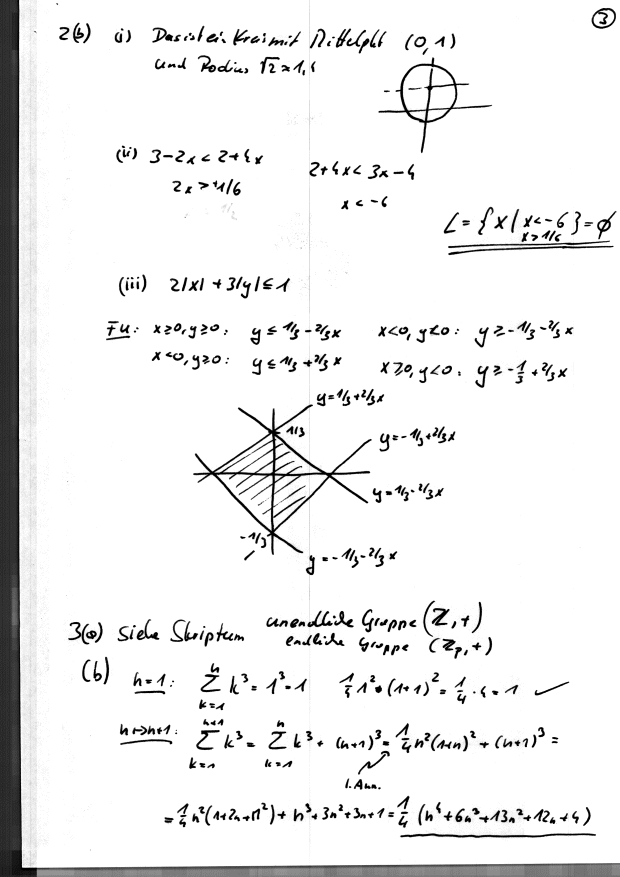 3
2(b) (i) Das ist ein Kreis mit Mittelpkt (0,1)
und Radius √2 ≈ 1,4
(ii) 3-2x < 2+4x 2+4x < 3x-4
2x > 1/6 x < -6
L = {x | x<-6 x>1/6} = ∅
(iii) 2|x| + 3|y| ≤ 1
FU: x≥0, y≥0: y ≤ 1/3 - 2/3x x<0, y<0: y ≥ -1/3 - 2/3x
x<0, y≥0: y ≤ 1/3 + 2/3x x≥0, y<0: y ≥ -1/3 + 2/3x
y = 1/3 + 2/3x
1/3
y = -1/3 + 2/3x
y = 1/3 - 2/3x
-1/3
y = -1/3 - 2/3x
3(a) Siehe Skriptum unendliche Gruppe (ℤ, +)
endliche Gruppe (ℤp, +)
(b) n=1: ∑_{k=1}^{n} k³ = 1³ = 1 1/4 1²•(1+1)² = 1/4 · 4 = 1 ✓
n→n+1: ∑_{k=1}^{n+1} k³ = ∑_{k=1}^{n} k³ + (n+1)³ = 1/4 n²(1+n)² + (n+1)³ =
I. Ann.
= 1/4 n²(1+2n+n²) + n³+3n²+3n+1 = 1/4 (n⁴+6n³+13n²+12n+4)